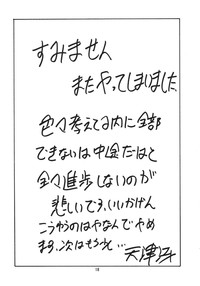 すみません
またやってしまいました
色々考えてる内に全部
できないは中途だはで
全々進歩しないのが
悲しいです、いいかげん
こうゆうのはやなんでやめ
ます、次はもう
18